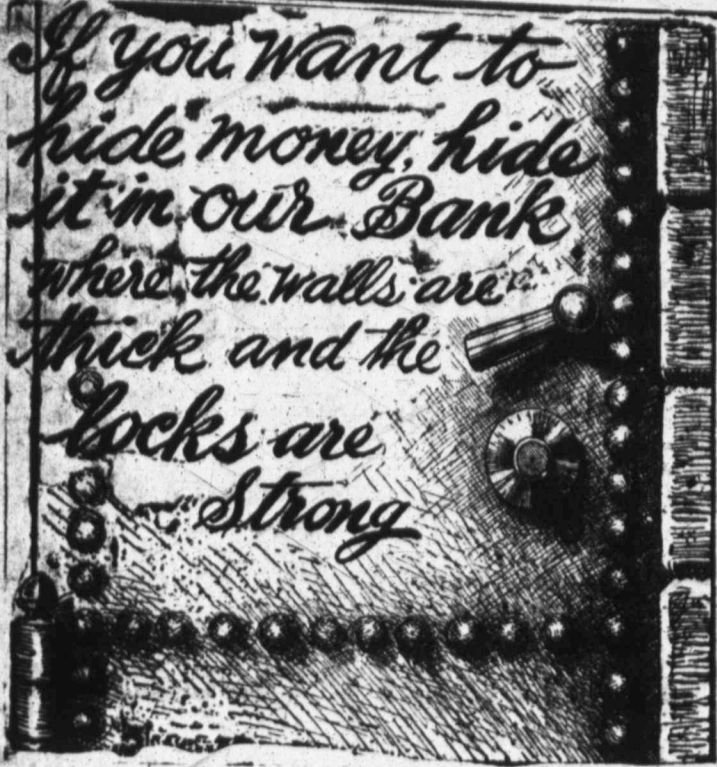 If you want to
hide money, hide
it in our Bank
where the walls are
thick and the
locks are
Strong